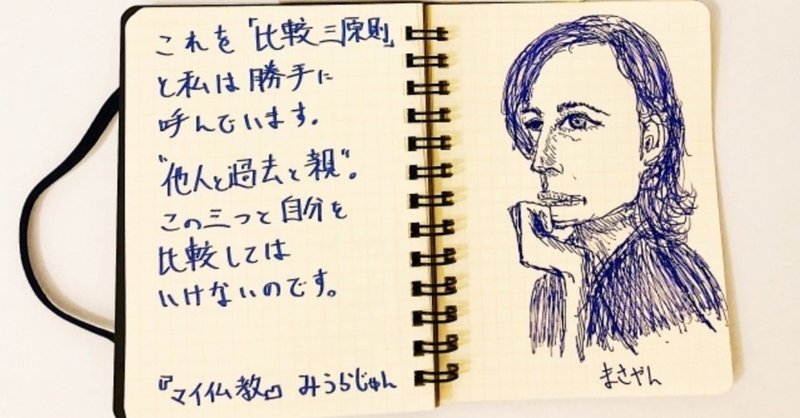 これを「比較三原則」
と私は勝手に
呼んでいます。
"他人と過去と親"。
この三つと自分を
比較しては
いけないのです。
『マイ仏教』みうらじゅん
まさやん